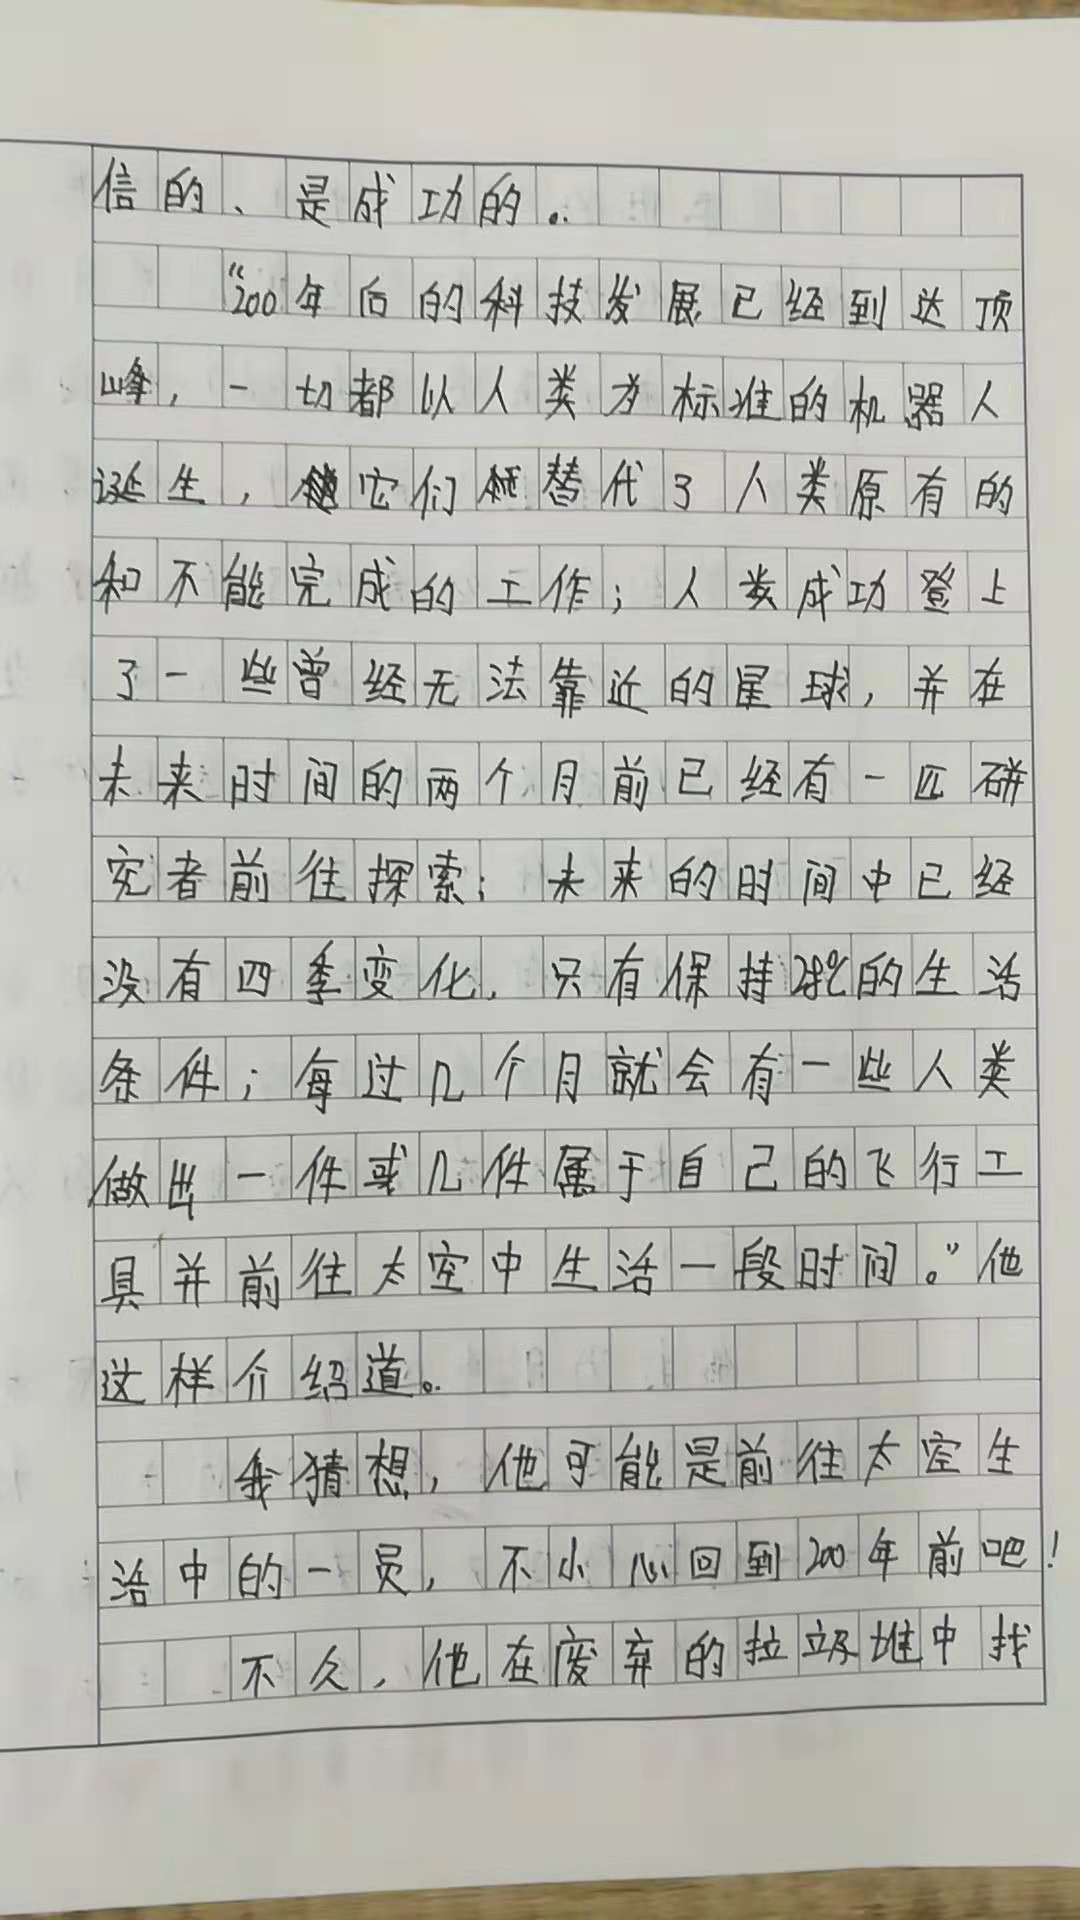 信的、是成功的。
“200年后的科技发展已经到达顶
峰，一切都以人类为标准的机器人
诞生，它们替代了人类原有的
和不能完成的工作；人类成功登上
了一些曾经无法靠近的星球，并在
未来时间的两个月前已经有一匹研
究者前往探索；未来的时间中已经
没有四季变化，只有保持28℃的生活
条件；每过几个月就会有一些人类
做出一件或几件属于自己的飞行工
具并前往太空中生活一段时间。”他
这样介绍道。
我猜想，他可能是前往太空生
活中的一员，不小心回到200年前吧！
不久，他在废弃的垃圾堆中找